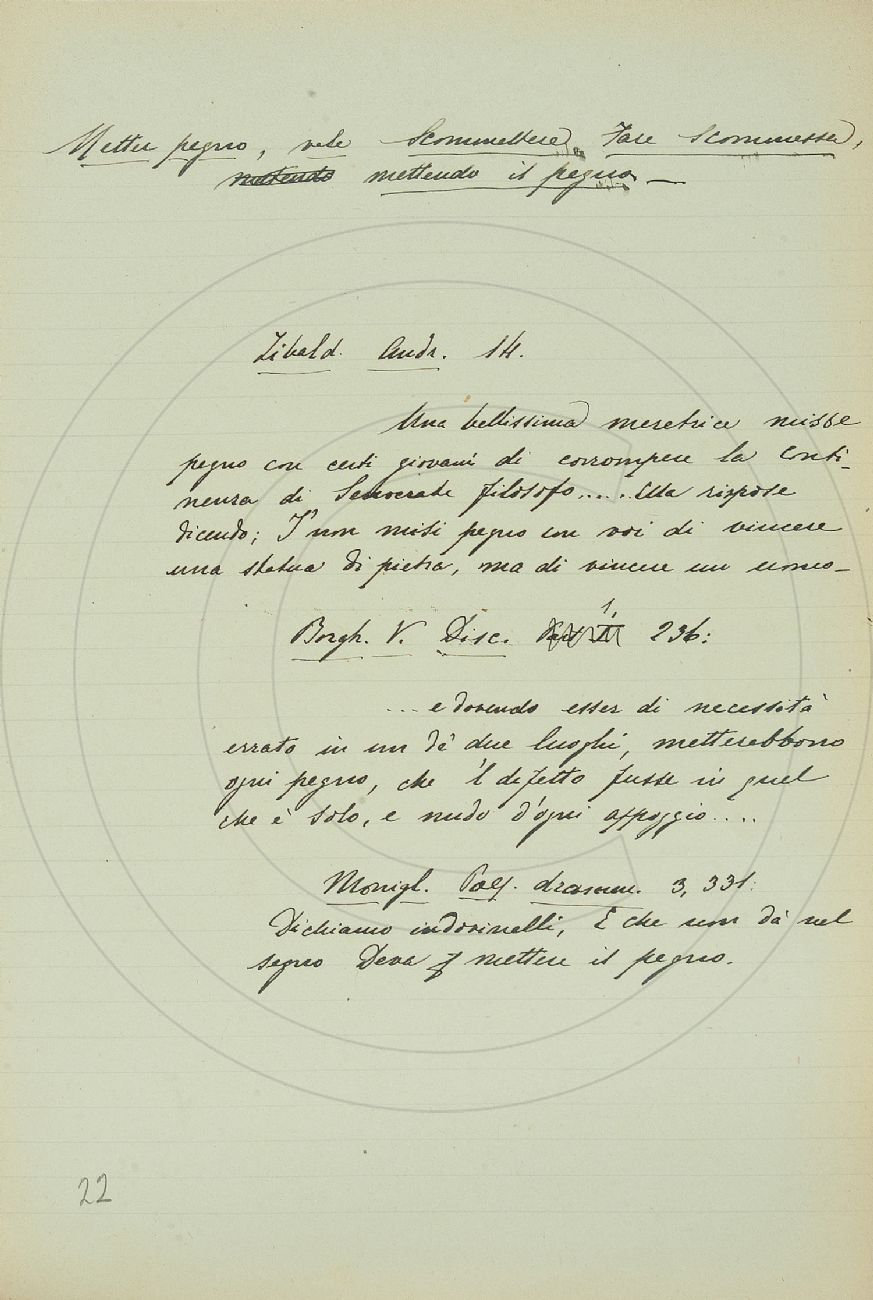 Metter pegno, vale Scommettere, Fare scommessa,
mettendo mettendo il pegno. —
Zibald. Andr. 14.
Una bellissima meretrice misse
pegno con certi giovani di corrompere la conti-
nenza di Senocrate filosofo.... Ella rispose
dicendo; I' non misi pegno con voi di vincere
una statua di pietra, ma di vincere un uomo —
Borgh. V. Disc. 1, 236:
... e dovendo esser di necessità
errato in un de' due luoghi, metterebbono
ogni pegno, che 'l difetto fusse in quel
che è solo, e nudo d'ogni appoggio....
Monigl. Poes. dramm. 3, 331:
Dichiamo indovinelli, E che non dà nel
segno Deva mettere il pegno.
22